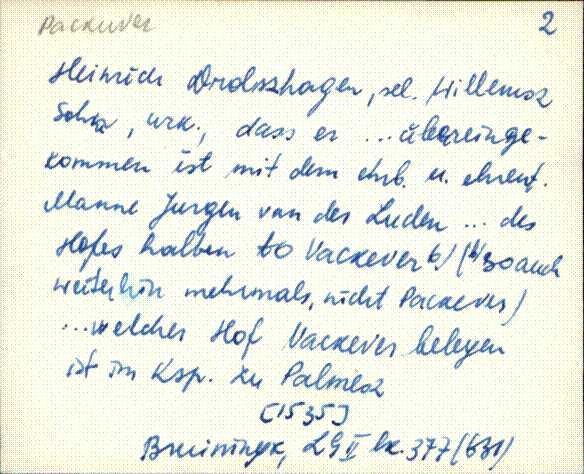 Packever 2
Heinrich Drolszhagen, sel. Willemsz
Sohn, urk., dass er ... übereinge-
kommen ist mit dem ehrb. u. ehrent.
Manne Jurgen van der Luden ... des
Hofes halben to Vackever b) (b) so auch
weiterhin mehrmals, nicht Packever)
... welcher Hof Vackever belegen
ist im Ksp. zu Palmesz
[1535]
Bruiningk, LG II Nr. 377 (631)